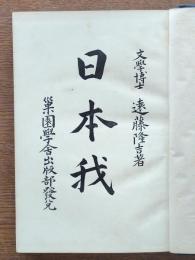 文學博士 遠藤隆吉著
日本我
巣園學舎出版部發兌